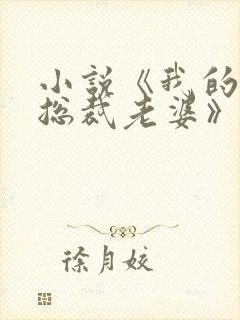 小说《我的
总裁老婆》
徐月姣